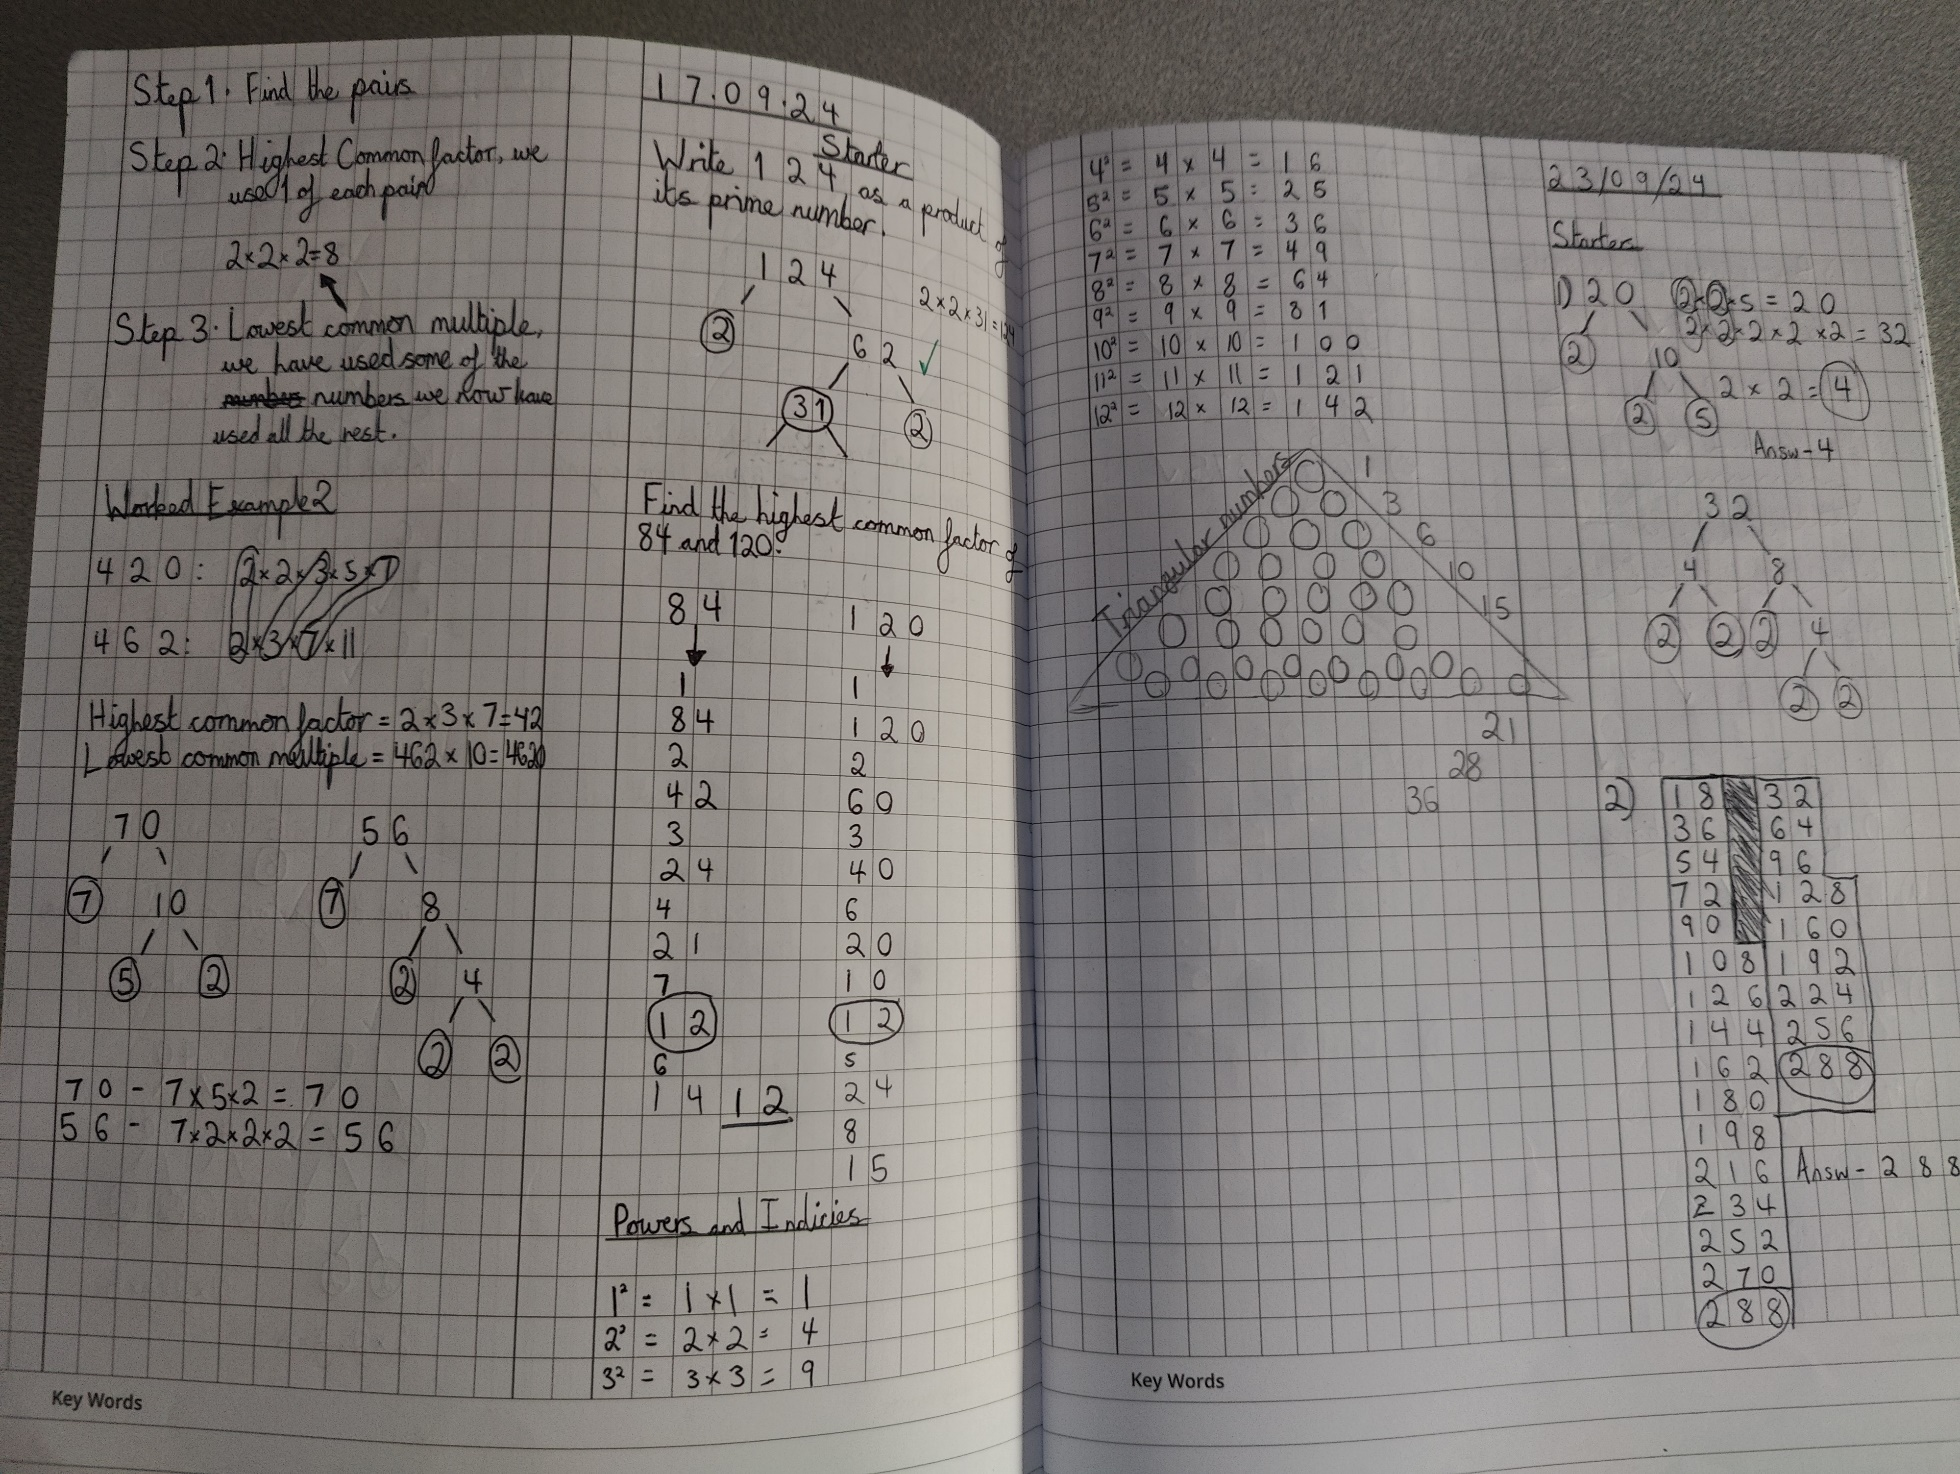 Step 1. Find the pairs
Step 2: Highest Common factor, we
use 1 of each pair
2×2×2=8
Step 3. Lowest common multiple,
we have used some of the
numbers we now have
used all the rest.
Worked Example 2
420: 2×2×3×5×7
462: 2×3×7×11
Highest common factor = 2×3×7=42
Lowest common multiple = 462×10=4620
70
7 10
5 2
56
7 8
2 4
2 2
70 - 7×5×2 = 70
56 - 7×2×2×2 = 56
Key Words
17.09.24
Starter
Write 124 as a product of
its prime number.
124
2 62
31 2
2×2×31=124
Find the highest common factor of
84 and 120.
84 120
1 1
84 120
2 2
42 60
3 3
24 40
4 6
21 20
7 10
12 12
6 5
14 12 24
8
15
Powers and Indicies
1² = 1×1 = 1
2² = 2×2 = 4
3² = 3×3 = 9
4² = 4×4 = 16
5² = 5×5 = 25
6² = 6×6 = 36
7² = 7×7 = 49
8² = 8×8 = 64
9² = 9×9 = 81
10² = 10×10 = 100
11² = 11×11 = 121
12² = 12×12 = 142
Triangular numbers
1
3
6
10
15
21
28
36
Key Words
23/09/24
Starter
1) 20 2×2×5 = 20
2×2×2×2×2 = 32
2 10
2 5
2×2 = 4
Answ-4
32
4 8
2 2 2 4
2 2
2) 18 32
36 64
54 96
72 128
90 160
108 192
126 224
144 256
162 288
180
198
216 Answ-288
234
252
270
288